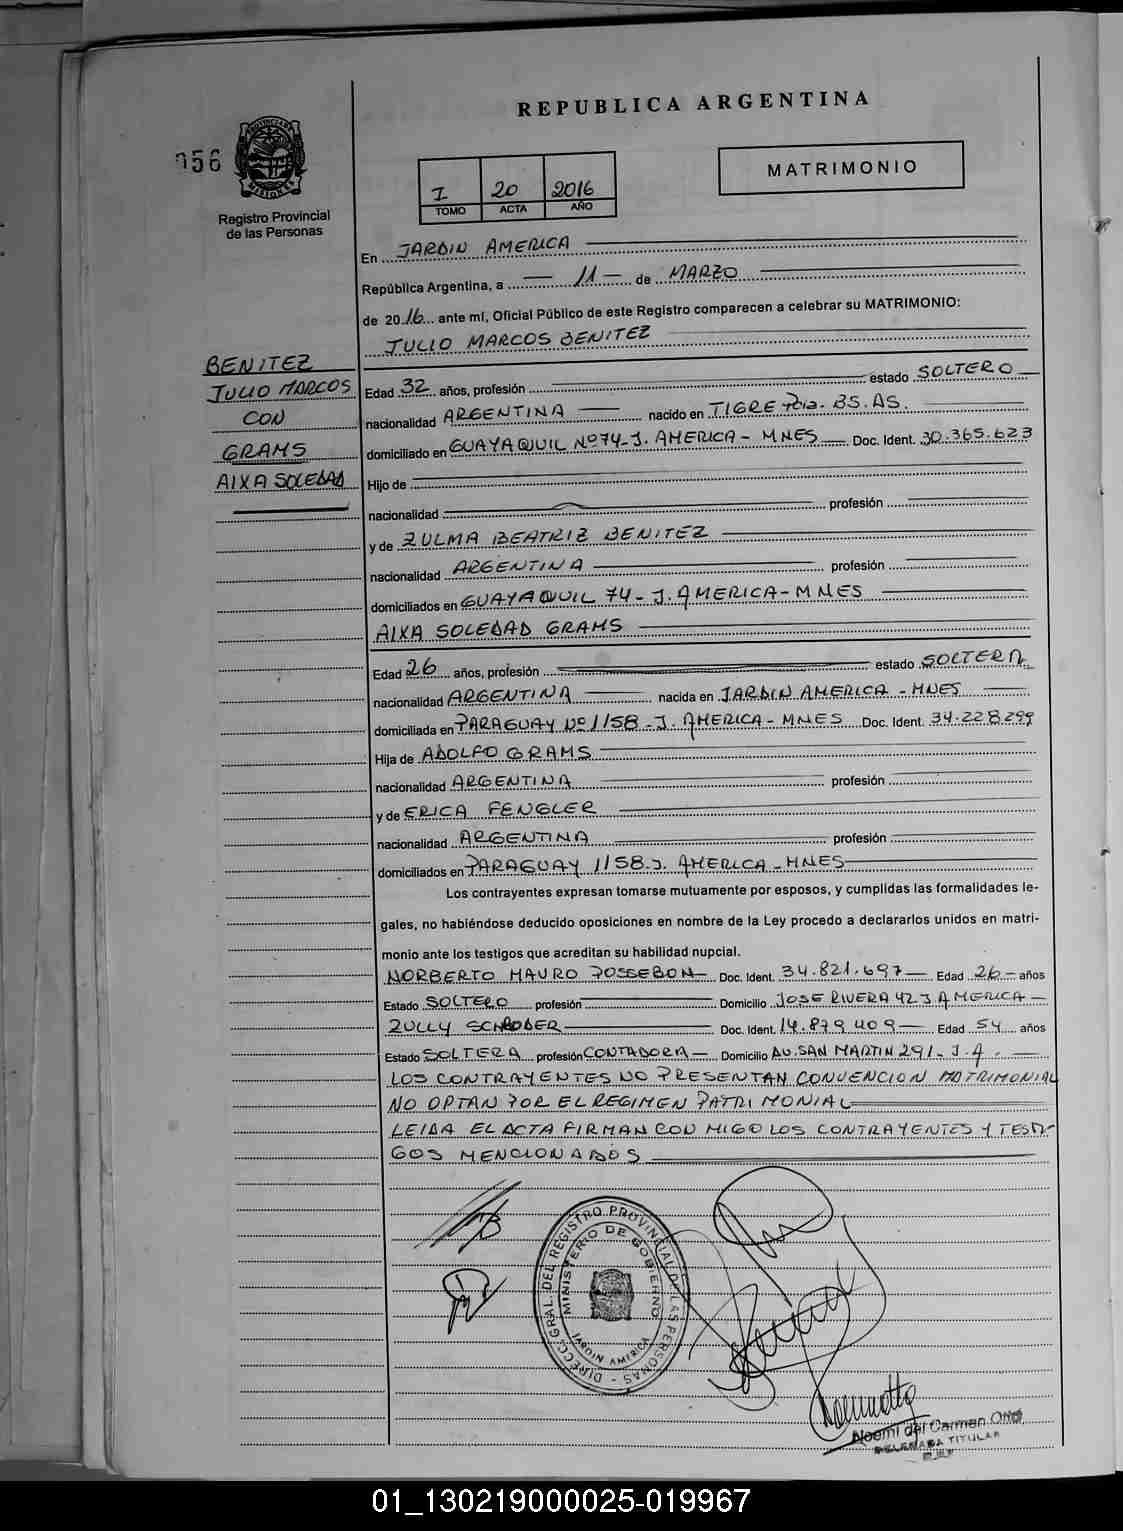 REPUBLICA ARGENTINA
056
PROVINCIA DE MISIONES
Registro Provincial
de las Personas
I 20 2016
TOMO ACTA AÑO
MATRIMONIO
En JARDIN AMERICA
República Argentina, a 11 de MARZO
de 2016 ante mí, Oficial Público de este Registro comparecen a celebrar su MATRIMONIO:
JULIO MARCOS BENITEZ
BENITEZ
JULIO MARCOS
CON
GRAMS
AIXA SOLEDAD
Edad 32 años, profesión estado SOLTERO
nacionalidad ARGENTINA nacido en TIGRE Pcia. BS. AS.
domiciliado en GUAYAQUIL Nº 74 - J. AMERICA - MNES Doc. Ident. 30.365.623
Hijo de
nacionalidad profesión
y de ZULMA BEATRIZ BENITEZ
nacionalidad ARGENTINA profesión
domiciliados en GUAYAQUIL 74 - J. AMERICA - MNES
AIXA SOLEDAD GRAMS
Edad 26 años, profesión estado SOLTERA
nacionalidad ARGENTINA nacida en JARDIN AMERICA - MNES
domiciliada en PARAGUAY Nº 1158 - J. AMERICA - MNES Doc. Ident. 34.228.299
Hija de ADOLFO GRAMS
nacionalidad ARGENTINA profesión
y de ERICA FENGLER
nacionalidad ARGENTINA profesión
domiciliados en PARAGUAY 1158 - J. AMERICA - MNES
Los contrayentes expresan tomarse mutuamente por esposos, y cumplidas las formalidades le-
gales, no habiéndose deducido oposiciones en nombre de la Ley procedo a declararlos unidos en matri-
monio ante los testigos que acreditan su habilidad nupcial.
NORBERTO MAURO POSSEBON Doc. Ident. 34.821.697 Edad 26 años
Estado SOLTERO profesión Domicilio JOSE RIVERA 42 J. AMERICA
ZULLY SCHRODER Doc. Ident. 14.879.409 Edad 54 años
Estado SOLTERA profesión CONTADORA Domicilio AV. SAN MARTIN 291 - J. A.
LOS CONTRAYENTES NO PRESENTAN CONVENCION MATRIMONIAL
NO OPTAN POR EL REGIMEN PATRIMONIAL
LEIDA EL ACTA FIRMAN CON MIGO LOS CONTRAYENTES Y TESTI-
GOS MENCIONADOS
DIRECC. GRAL. DEL REGISTRO PROVINCIAL DE LAS PERSONAS
MINISTERIO DE GOBIERNO
JARDIN AMERICA
Noemi del Carmen
DELEGADA TITULAR
01_130219000025-019967